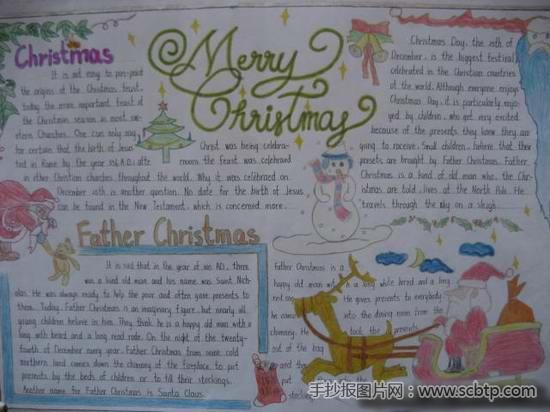 Christmas
It is not easy to pin-point
the origins of the Christmas feast,
today the most important feast of
the Christmas season in most wes-
tern Churches. One can only say
for certain that the birth of Jesus
in Rome by the year
in other Christian churches throughout the world. Why it was celebrated on
December 25th is another question. No date for the birth of Jesus
can be found in the New Testament, which is concerned more
Christ was being celebra-
noon the feast was celebrated
Merry
Christmas
Christmas Day, the 25th of
December, is the biggest festival
celebrated in the Christian countries
of the world. Although everyone enjoys
Christmas Day, it is particularly enjo-
yed by children, who get very excited
because of the presents they know they are
going to receive. Small children believe that their
presents are brought by Father Christmas. Father
Christmas is a kind of old man who, the Chi-
are told, lives at the North Pole. He
travels through the sky on a sleigh
Father Christmas
It is said that in the year of A.D., there
was a kind old man and his name was Saint Nich-
olas. He was always ready to help the poor and often gave presents to
them. Today, Father Christmas is an imaginary figure, but nearly all
young children believe in him. They think he is a happy old man with a
long with beard and a long read robe. On the night of the twenty-
fourth of December every year, Father Christmas from some cold
northern land comes down the chimney of the fireplace to put
presents by the beds of children or to fill their stockings.
Another name for Father Christmas is Santa Claus.
Father Christmas is a
happy old man with a long white beard and a long
He gives presents to everybody
he comes into the dining room from the
chimney. He took the presents
out of the bag
and the
put
手抄报图片网:www.scbtp.com